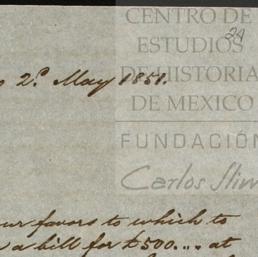 CENTRO DE
ESTUDIOS
24
DE HISTORIA
2.d May 1851.
DE MEXICO
FUNDACIÓN
Carlos Slim
favors to which to
a bill for $500.... at